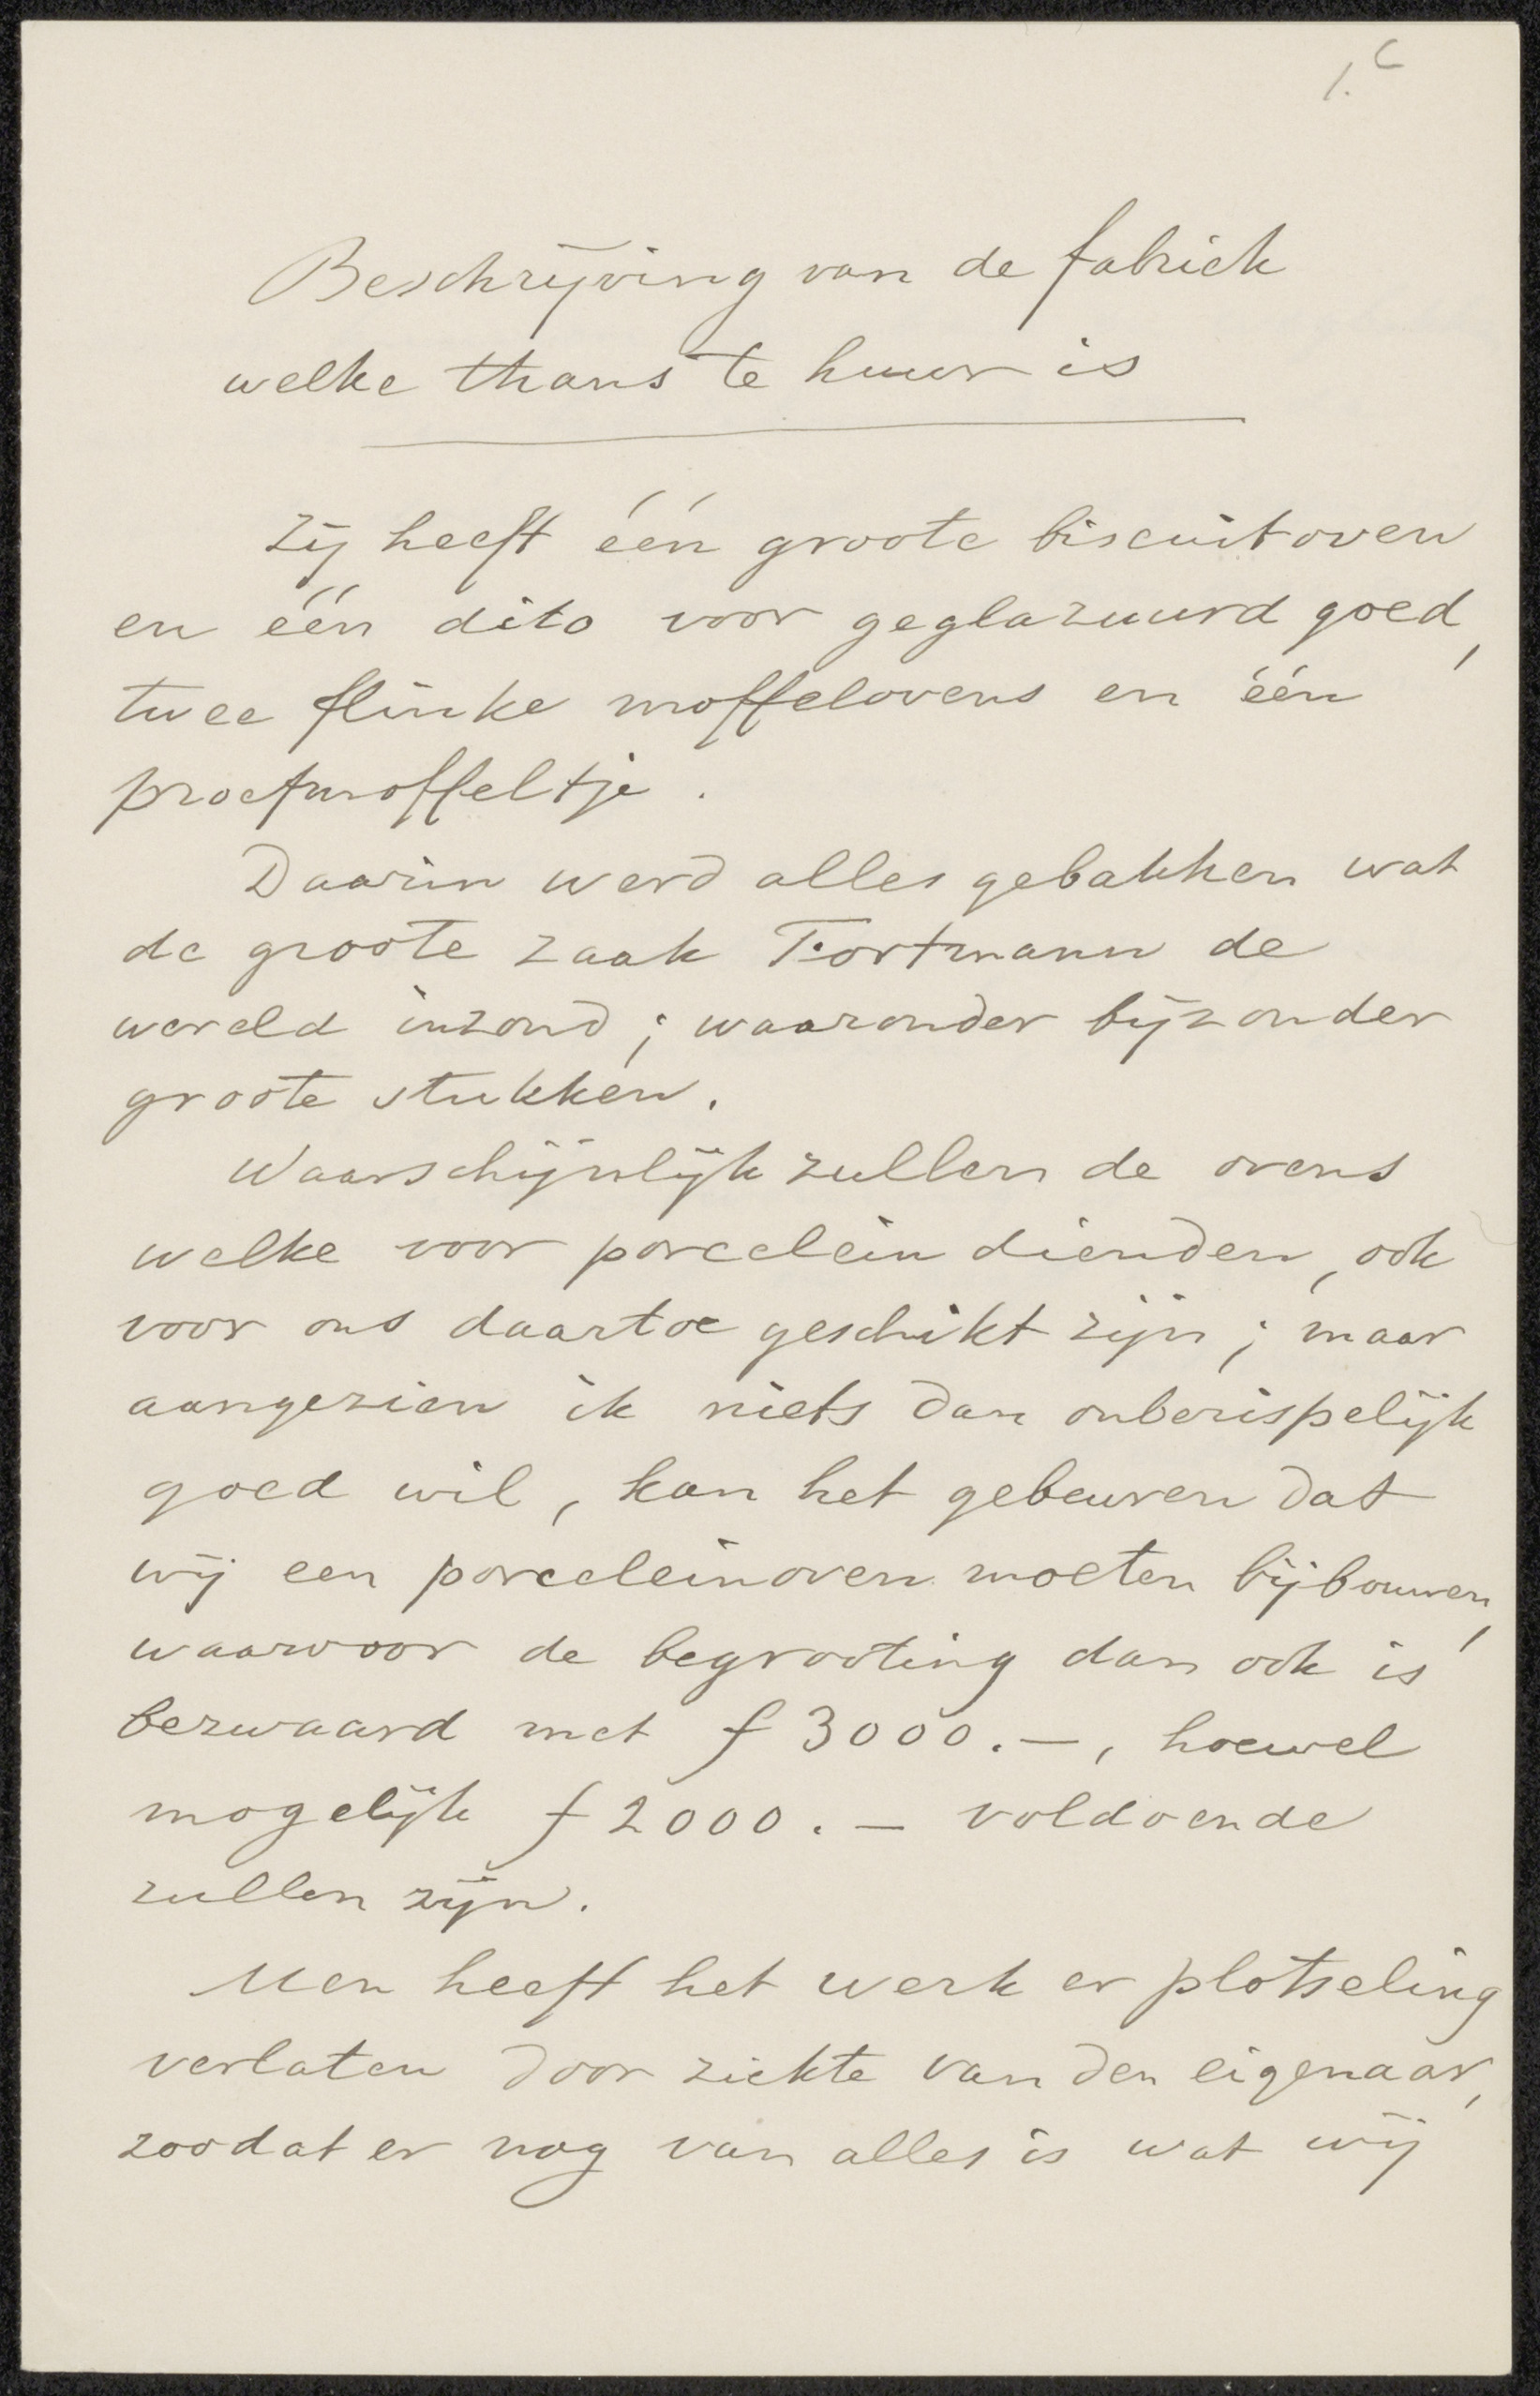 1. c
Beschrijving van de fabriek
welke thans te huur is
Zij heeft één groote biscuitoven
en één dito voor geglazuurd goed,
twee flinke moffelovens en één
proefmoffeltje.
Daarin werd alles gebakken wat
de groote zaak Fortmann de
wereld inzond; waaronder bijzonder
groote stukken.
Waarschijnlijk zullen de ovens
welke voor porcelein dienden, ook
voor ons daartoe geschikt zijn; maar
aangezien ik niets dan onberispelijk
goed wil, kan het gebeuren dat
wij een porceleinoven moeten bijbouwen,
waarvoor de begrooting dan ook is
bezwaard met f 3000.—, hoewel
mogelijk f 2000.— voldoende
zullen zijn.
Men heeft het werk er plotseling
verlaten door ziekte van den eigenaar,
zoodat er nog van alles is wat wij